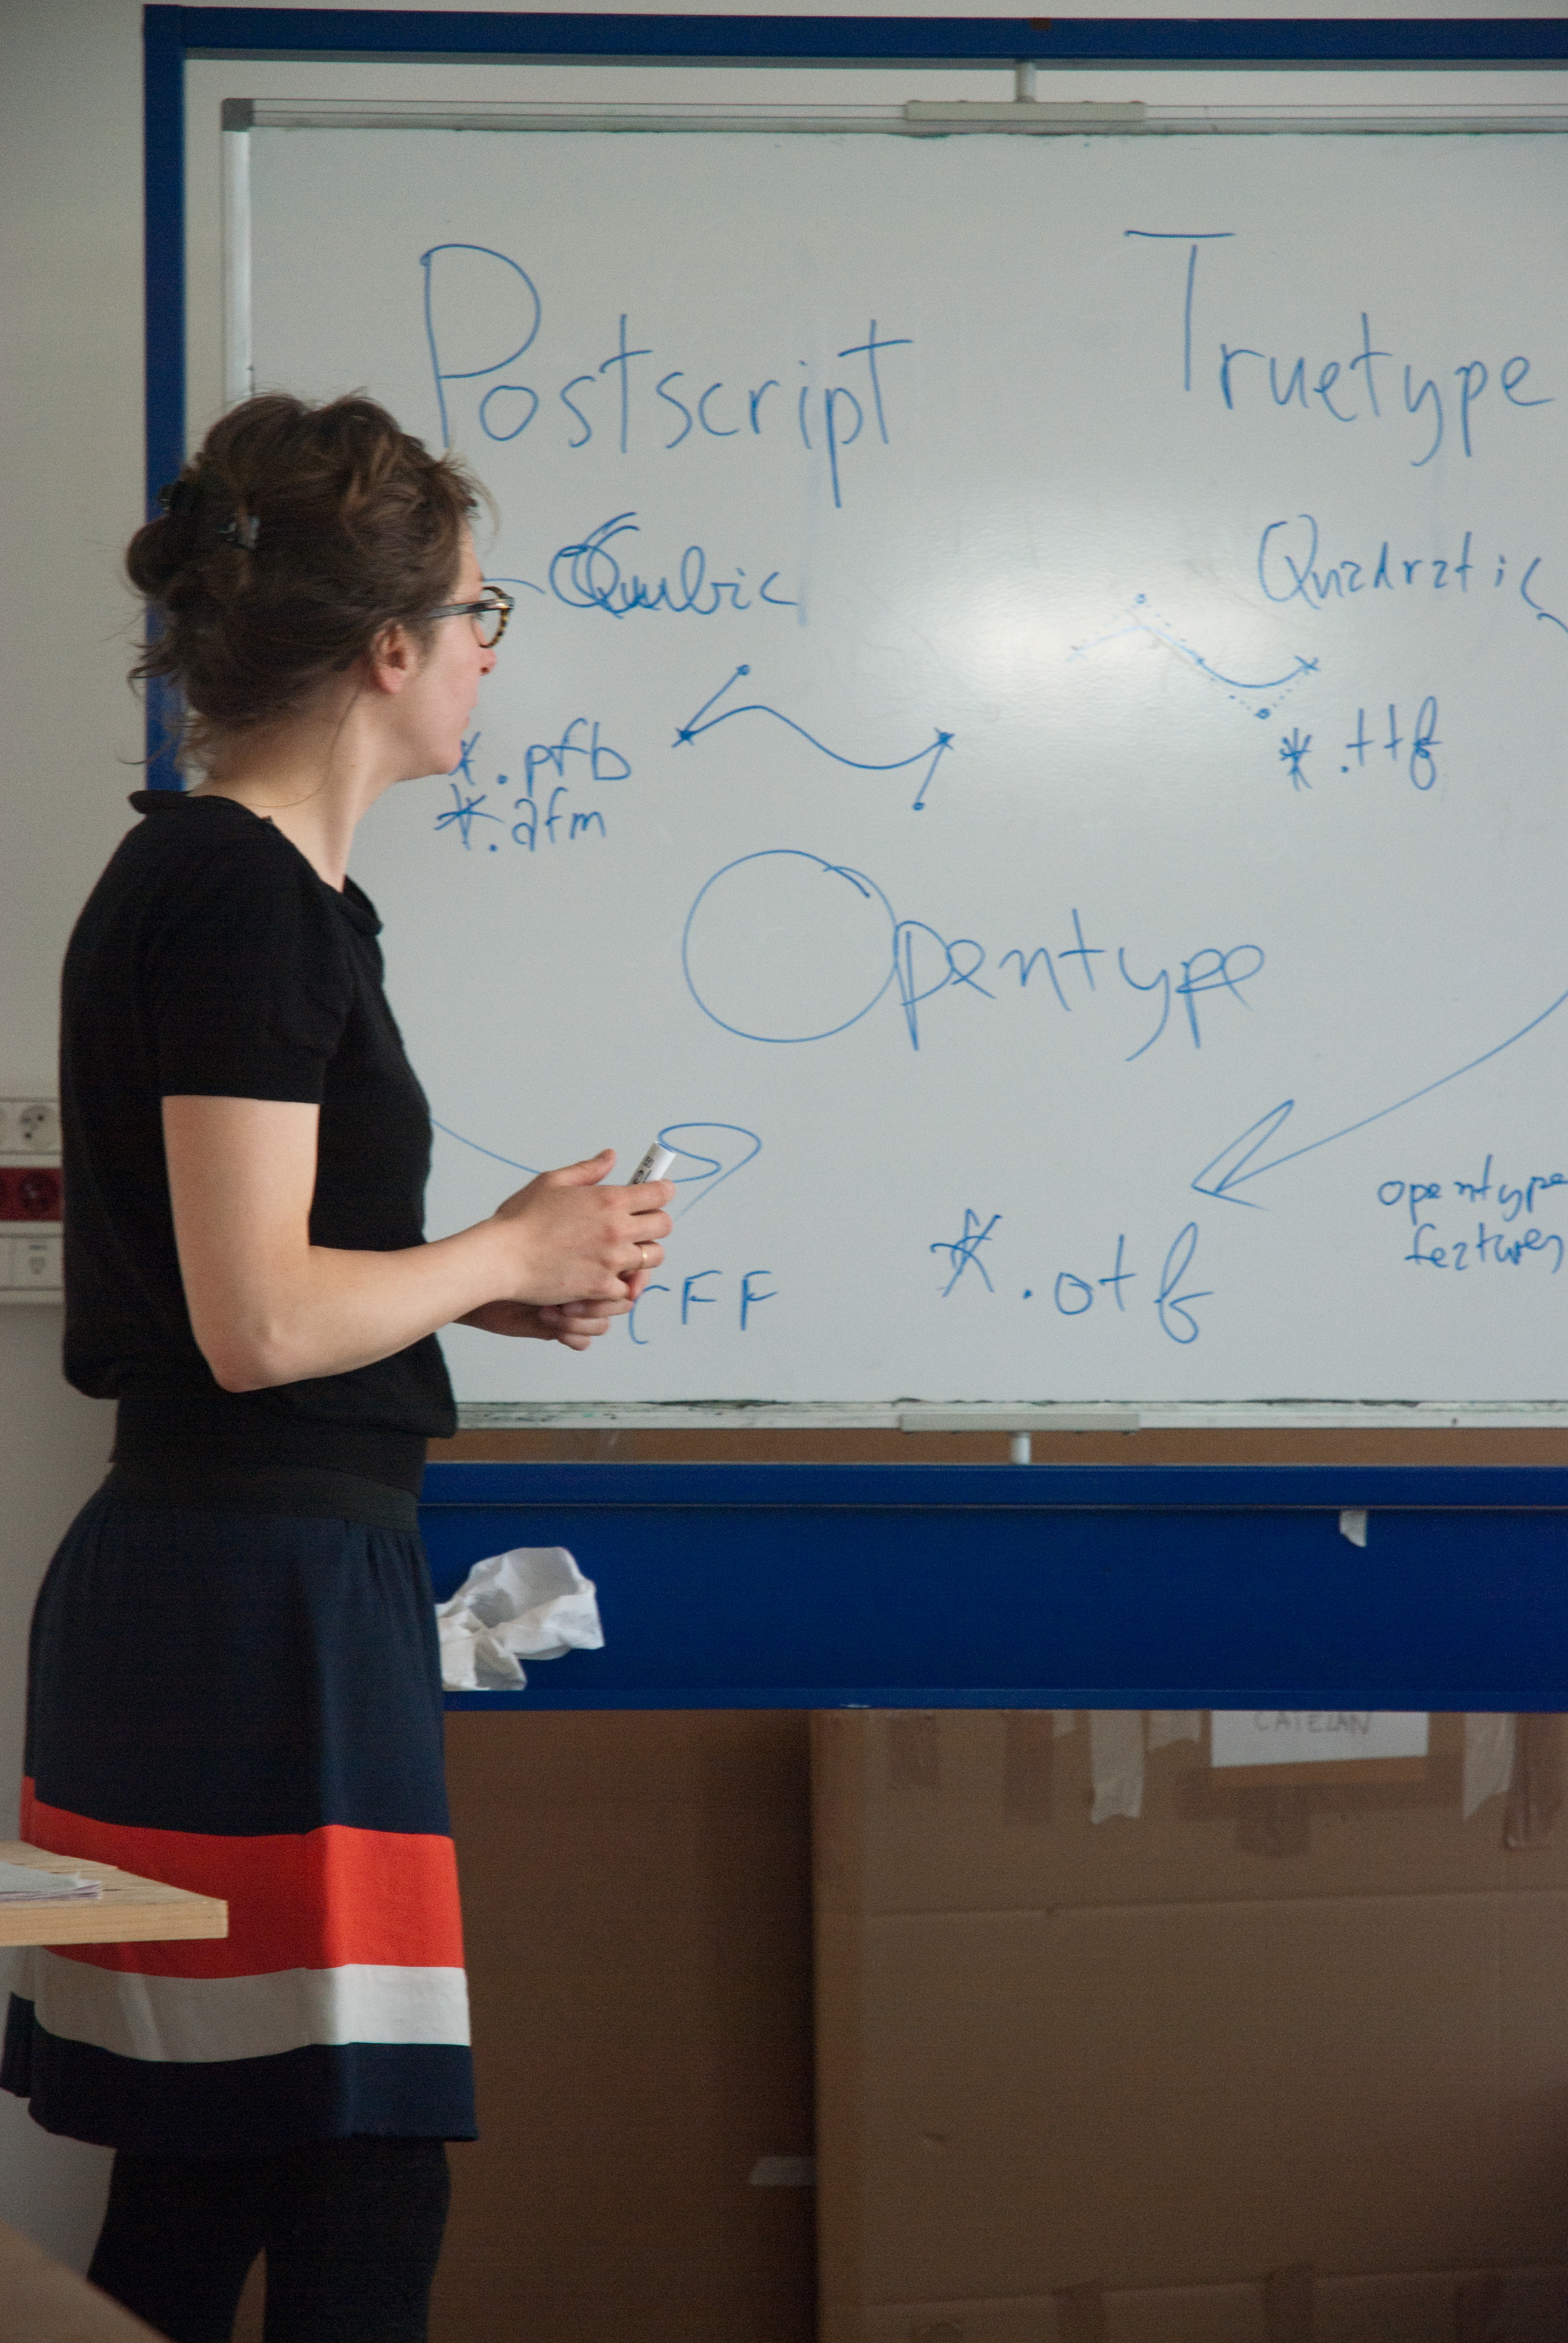 Postscript
Truetype
Cubic
Quadratic
*.pfb
*.afm
*.ttf
Opentype
opentype
features
CFF
*.otf
CATELAN